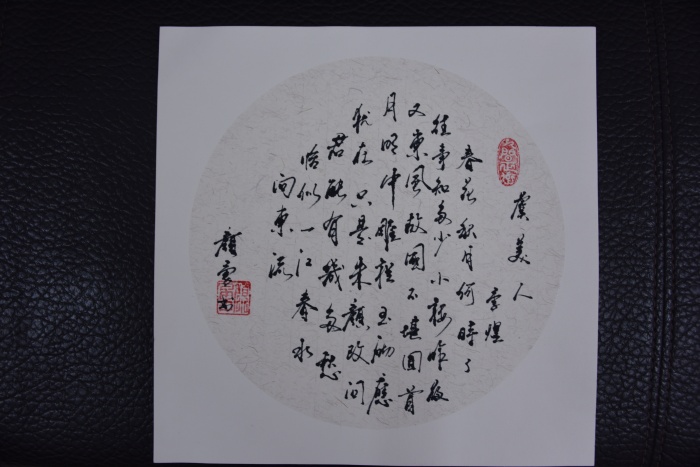 虞美人
李煌
春花秋月何時了
往事知多少小楼昨夜
又東風故國不堪回首
月明中雕栏玉砌應
犹在只是朱顏改问
君能有幾多愁
恰似一江春水
向東流